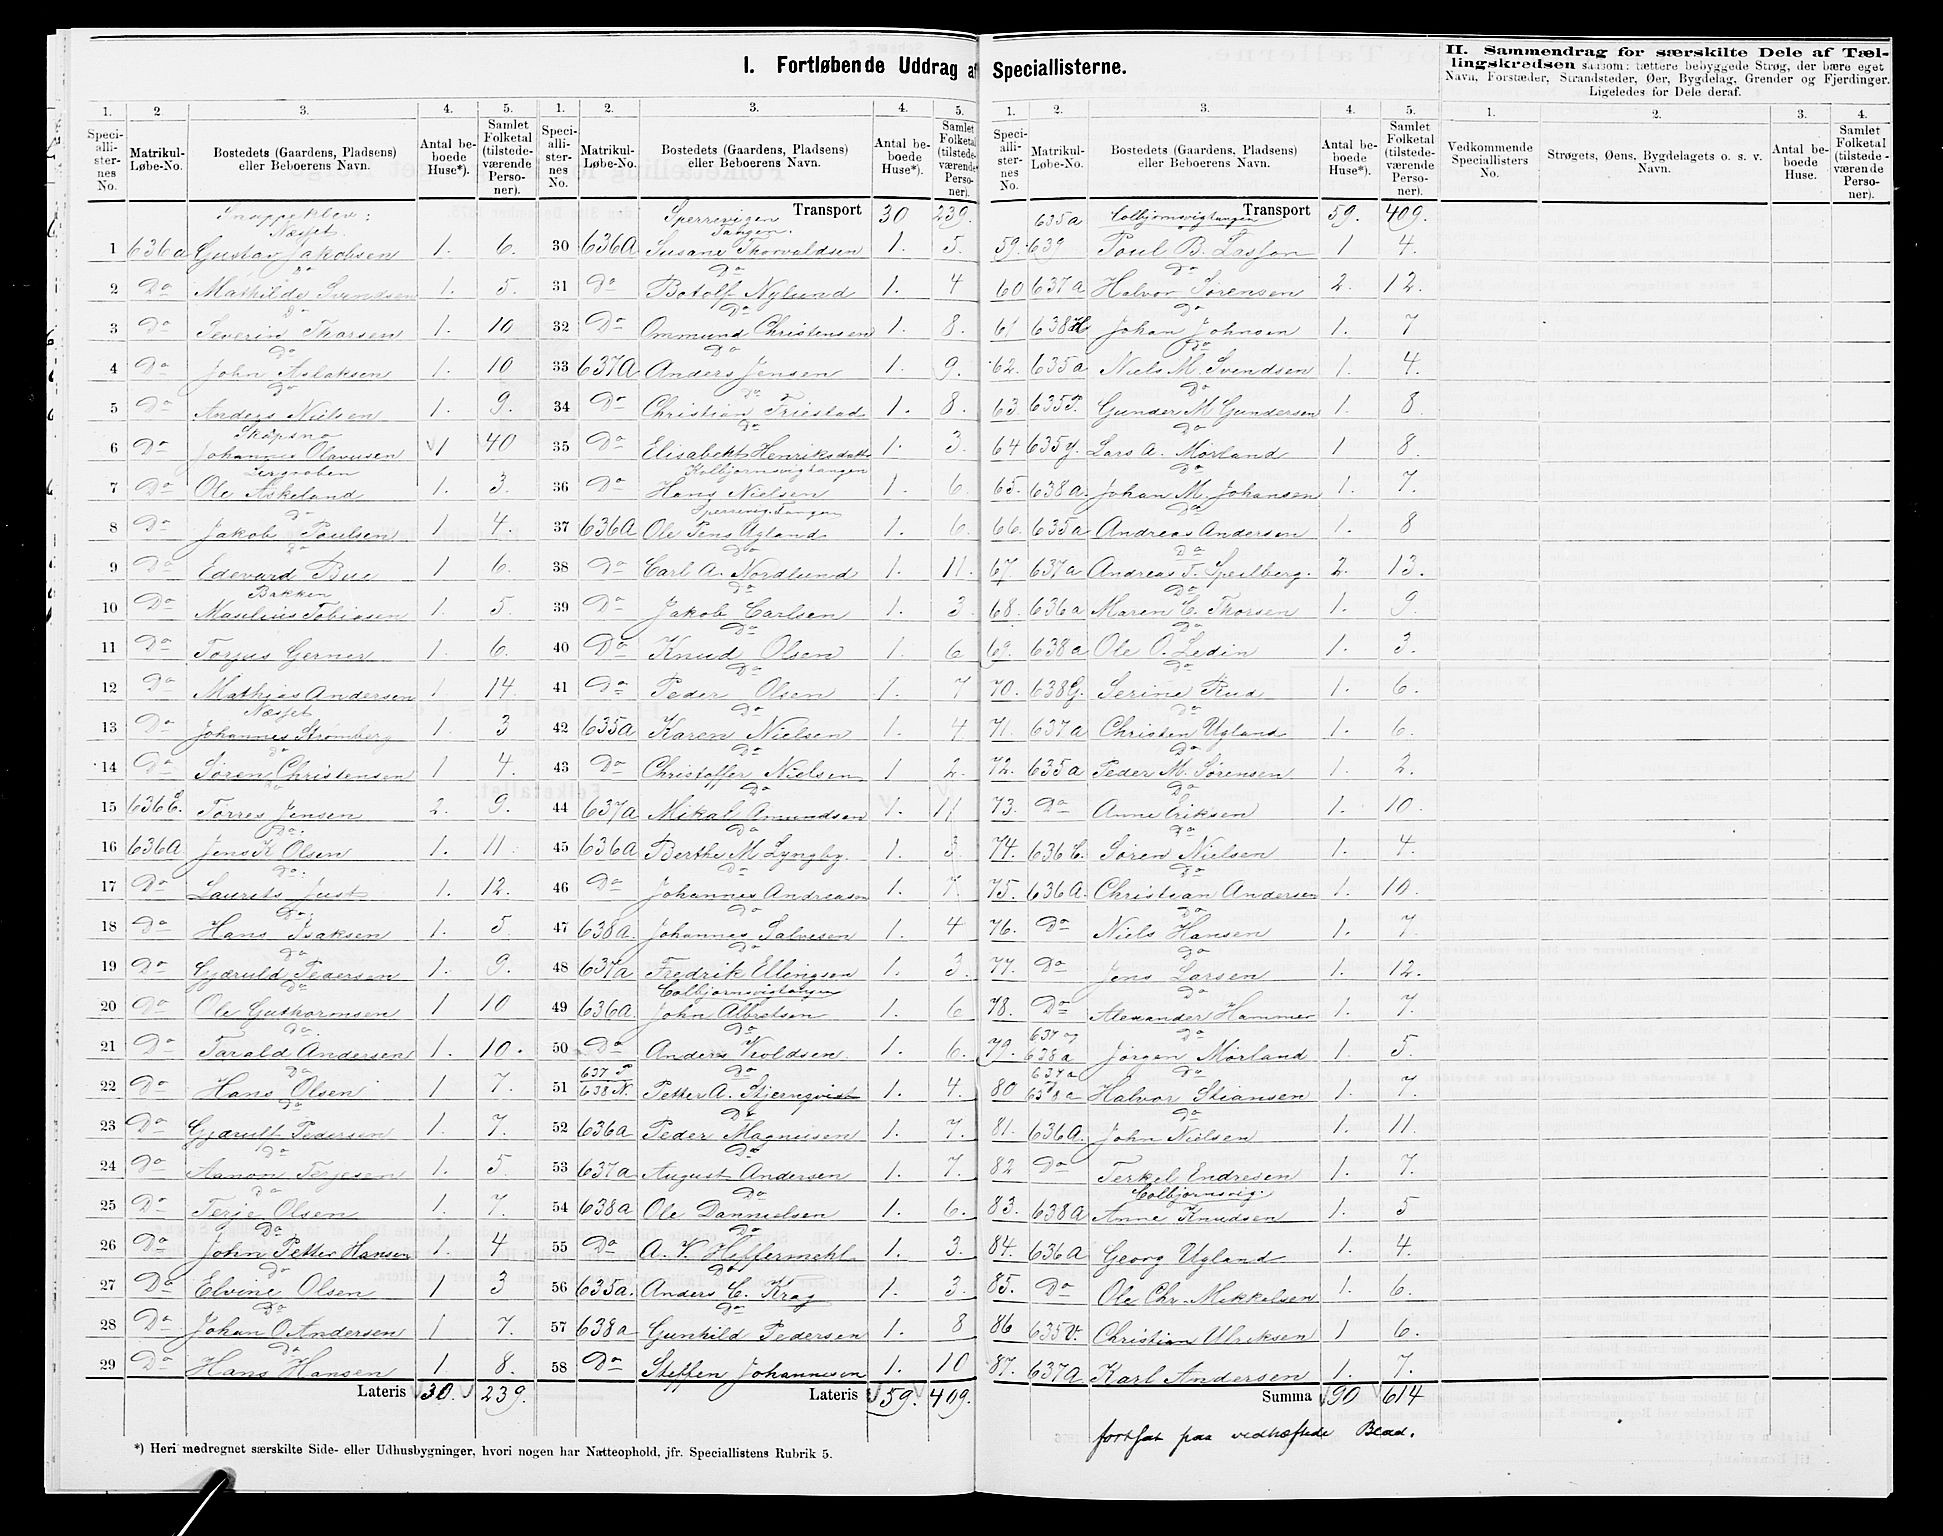 I. Fortløbende Uddrag af Speciallisterne.
1. 2 3. 4. 5.
Speciallisternes No. Matrikul-Løbe-No. Bostedets (Gaardens, Pladsens) eller Beboerens Navn. Antal beboede Huse*). Samlet Folketal (tilstedeværende Personer).
Næsset.
1 636a Gustav Jakobsen 1. 6.
Do
2 Do Mathilde Svendsen 1. 5.
Do
3 Do Severin Thorsen 1. 10
Do
4 Do John Aslaksen 1. 10
Do
5 Do Anders Nielsen 1. 9.
6 Do Johannes Olavusen 1 40
7 Do Ole Askeland 1. 3.
Do
8 Do Jakob Poulsen 1 4.
Do
9 Do Edevard Bue 1 6.
Bakken
10 Do Maselius Tobiasen 1. 5.
11 Do Torjus Gerner 1. 6.
12 Do Mathias Andersen 1 14.
Næsset
13 Do Johannes Strømberg 1. 3
Do
14 Do Søren Christensen 1 4.
Do
15 636 C. Torres Jensen 2. 9.
Do
16 636A Jens K Olsen 1. 11
Do.
17 Do Laurits Just 1. 12.
Do.
18 Do Hans Isaksen 1. 5.
Do
19 Do Gjæruld Pedersen 1. 9.
Do
20 Do Ole Guthormsen 1 10
Do.
21 Do Tarald Andersen 1. 10.
Do
22 Do Hans Olsen 1 7.
Do
23 Do Gjærult Pedersen 1. 7.
Do
24 Do Aanon Terjesen 1. 5
Do
25 Do Terje Olsen 1. 7.
Do
26 Do John Petter Hansen 1. 4
Do
27 Do Elvine Olsen 1 3
Do
28 Do Johan O. Andersen 1 7.
Do
29 Do Hans Hansen 1. 8.
Lateris 30. 239.
*) Heri medregnet særskilte Side- eller Udhusbygninger, hvori nogen har Natteophold, jfr. Speciallistens Rubrik 5.
1. 2. 3. 4. 5.
Speciallisternes No. Matrikul-Løbe-No. Bostedets (Gaardens, Pladsens) eller Beboerens Navn. Antal beboede Huse*). Samlet Folketal (tilstedeværende Personer).
Sperrevigen Transport 30 239.
Tangen.
30 636A Susane Thorvaldsen 1. 5.
Do
31 Do Botolf Nylund 1. 4
Do
32 Do Ommund Christensen 1. 8.
Do
33 637A Anders Jensen 1. 9.
Do
34 Do Christian Friestad 1. 8.
Do
35 Do Elisabeth Henriksdatter 1. 3.
Kolbjornsvigtangen
36 Do Hans Nielsen 1. 6.
Sperrevig.tangen
37 636A Ole Jens Ugland 1. 6.
Do
38 Do Carl A. Nordlund 1. 11.
Do
39 Do Jakob Carlsen 1. 3.
Do
40 Do Knud Olsen 1. 6
Do
41 Do Peder Olsen 1. 7
Do
42 635A Karen Nielsen 1. 4
Do
43 Do Christoffer Nielsen 1 2.
Do
44 637a Mikal Amundsen 1. 11
Do
45 636A Berthe M Lyngby. 1. 3
Do
46 Do Johannes Andreasen 1. 7.
Do
47 638A. Johannes Salvesen 1. 4
Do
48 637a Fredrik Ellingsen 1. 3.
Colbjornsvigtangen
49 636A. John Albretsen 1. 6
Do
50 Do Anders Kroldsen 1. 6.
Do
51 637 P 638 N. Petter A. Stjernqvist 1. 4.
Do
52 636a Peder Magnusen 1. 7.
Do
53 637a August Andersen 1. 7.
Do
54 638a Ole Dannielsen 1. 6.
Do
55 Do A. V. Heffermehl 1. 3.
Do
56 635a. Anders C. Krag 1. 3.
Do
57 638a Gunhild Pedersen 1. 8
58 Do Steffen Johannesen 1. 10
Lateris 59. 409.
1. 2. 3. 4. 5.
Speciallisternes No. Matrikul-Løbe-No. Bostedets (Gaardens, Pladsens) eller Beboerens Navn. Antal beboede Huse*). Samlet Folketal (tilstedeværende Personer).
635a Colbjornsvigtangen Transport 59. 409.
59. 639 Poul B. Lassen 1 4.
Do
60 637a Halvor Sørensen 2. 12.
Do
61 638H Johan Johnsen 1. 7
Do
62. 635a Niels M. Svendsen 1. 4.
Do
63. 635P. Gunder M Gundersen 1. 8.
Do
64 635y. Lars A. Mørland 1 8
Do
65. 638a. Johan M. Johansen 1. 7.
Do
66. 635a Andreas Andersen 1. 8
Do
67. 637a Andreas T. Speilberg. 2. 13.
Do
68. 636a Maren C. Thorsen 1. 9.
Do
69. 638a Ole O. Ledin 1. 3.
Do
70. 638G. Serine Rud 1. 6.
Do
71. 637a Christen Ugland 1. 6.
Do
72. 635a Peder M. Sørensen 1. 2.
Do
73. Do Anne Eriksen 1. 10.
Do
74. 636 C. Søren Nielsen 1. 4.
Do
75. 636A. Christian Andersen 1. 10.
Do
76. Do Niels Hansen 1. 7.
Do
77. Do Jens Larsen 1. 12.
Do
78. Do Alexander Hammer 1. 7.
Do
79. 637 og 638a Jørgen Mørland 1. 5.
Do
80 637a Halvor Stiansen 1. 7.
Do
81. 636A. John Nielsen 1. 11.
82 Do Terkel Endresen 1. 7.
Colbjornsvig.
83. 638A Anne Knudsen 1. 5
84. 636A Georg Ugland 1. 4.
85. Do Ole Chr. Mikkelsen 1. 6.
86 635 Christian Ulriksen 1 6.
87. 637A Karl Andersen 1. 7.
Summa 90 614
fortsat paa vedhæftede Blad.
II. Sammendrag for særskilte Dele af Tællingskredsen saasom: tættere bebyggede Strøg, der bære eget Navn, Forstæder, Strandsteder, Øer, Bygdelag, Grender og Fjerdinger. Ligeledes for Dele deraf.
1. 2. 3. 4.
Vedkommende Speciallisters No. Strøgets, Øens, Bygdelagets o. s. v. Navn. Antal beboede Huse. Samlet Folketal (tilstedeværende Personer).